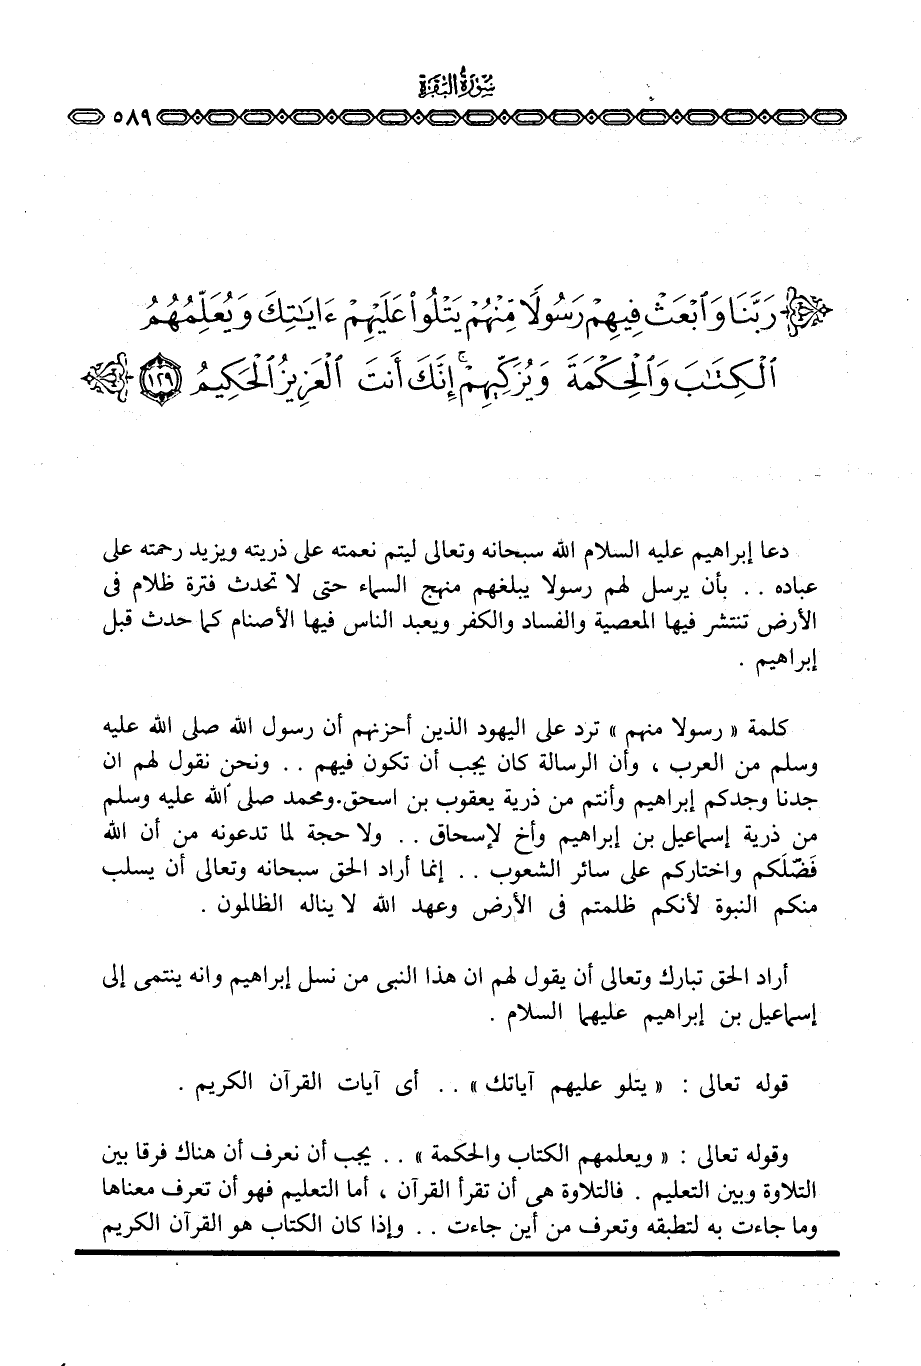 سورة البقرة
٥٨٩
رَبَّنَا وَٱبْعَثْ فِيهِمْ رَسُولًا مِّنْهُمْ يَتْلُوا۟ عَلَيْهِمْ ءَايَٰتِكَ وَيُعَلِّمُهُمُ
ٱلْكِتَٰبَ وَٱلْحِكْمَةَ وَيُزَكِّيهِمْ ۚ إِنَّكَ أَنتَ ٱلْعَزِيزُ ٱلْحَكِيمُ ١٢٩
دعا إبراهيم عليه السلام الله سبحانه وتعالى ليتم نعمته على ذريته ويزيد رحمته على
عباده . . بأن يرسل لهم رسولا يبلغهم منهج السماء حتى لا تحدث فترة ظلام فى
الأرض تنتشر فيها المعصية والفساد والكفر ويعبد الناس فيها الأصنام كما حدث قبل
إبراهيم .
كلمة « رسولا منهم » ترد على اليهود الذين أحزنهم أن رسول الله صلى الله عليه
وسلم من العرب ، وأن الرسالة كان يجب أن تكون فيهم . . ونحن نقول لهم ان
جدنا وجدكم إبراهيم وأنتم من ذرية يعقوب بن اسحق.ومحمد صلى الله عليه وسلم
من ذرية إسماعيل بن إبراهيم وأخ لإسحاق . . ولا حجة لما تدعونه من أن الله
فَضّلَكم واختاركم على سائر الشعوب . . إنما أراد الحق سبحانه وتعالى أن يسلب
منكم النبوة لأنكم ظلمتم فى الأرض وعهد الله لا يناله الظالمون .
أراد الحق تبارك وتعالى أن يقول لهم ان هذا النبى من نسل إبراهيم وانه ينتمى إلى
إسماعيل بن إبراهيم عليهما السلام .
قوله تعالى : « يتلو عليهم آياتك » . . أى آيات القرآن الكريم .
وقوله تعالى : « ويعلمهم الكتاب والحكمة » . . يجب أن نعرف أن هناك فرقا بين
التلاوة وبين التعليم . فالتلاوة هى أن تقرأ القرآن ، أما التعليم فهو أن تعرف معناها
وما جاءت به لتطبقه وتعرف من أين جاءت . . وإذا كان الكتاب هو القرآن الكريم